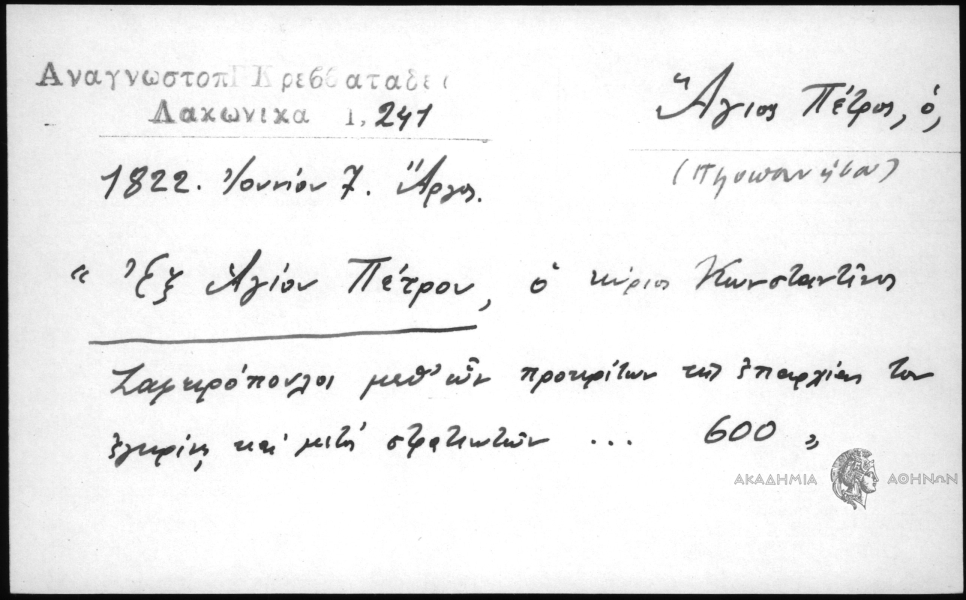 Αναγνωστοπ Κρεββαταδες
Λακωνικα 1, 241
Ἅγιος Πέτρος, ὁ,
1822. Ἰουνίου 7. Ἄργος.
" Ἐξ Ἁγίου Πέτρου, ὁ κύριος Κωνσταντῖνος
Ζαφειρόπουλος μεθ' ὧν προκρίτων τῆς ἐπαρχίας του
ἐγκρίνῃ καὶ μετὰ στρατιωτῶν ... 600 "
ΑΚΑΔΗΜΙΑ ΑΘΗΝΩΝ